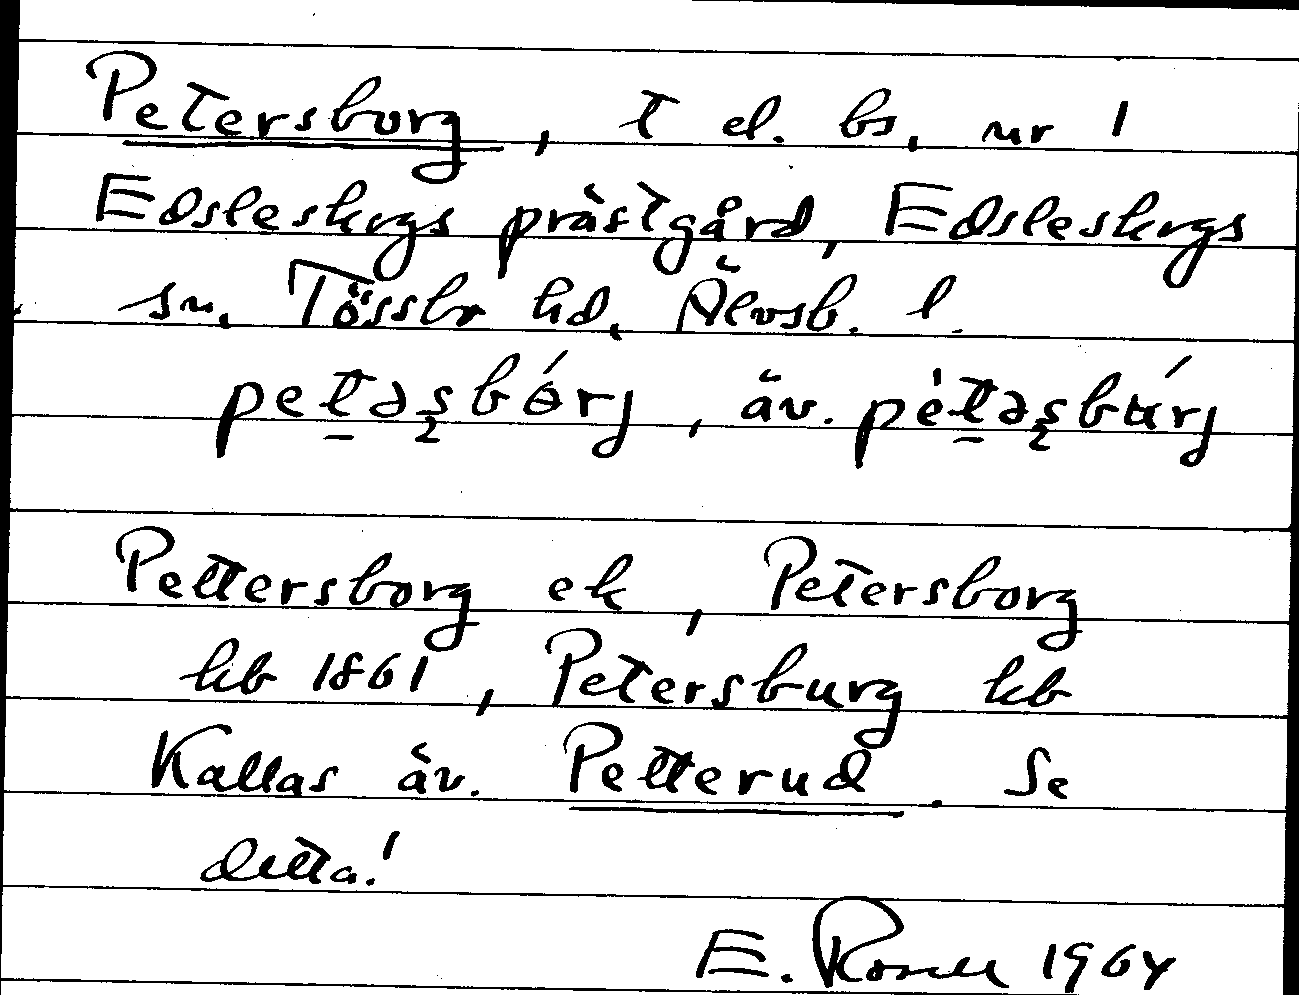 Petersborg, t el. bs, nr 1
Edsleskogs prästgård, Edsleskogs
sn. Tössbo hd, Älvsb. l.
petəʂbórj, äv. pètəʂbúrj
Pettersborg ek, Petersborg
kb 1861, Petersburg kb
Kallas äv. Petterud. Se
detta!
E. Rosell 1964